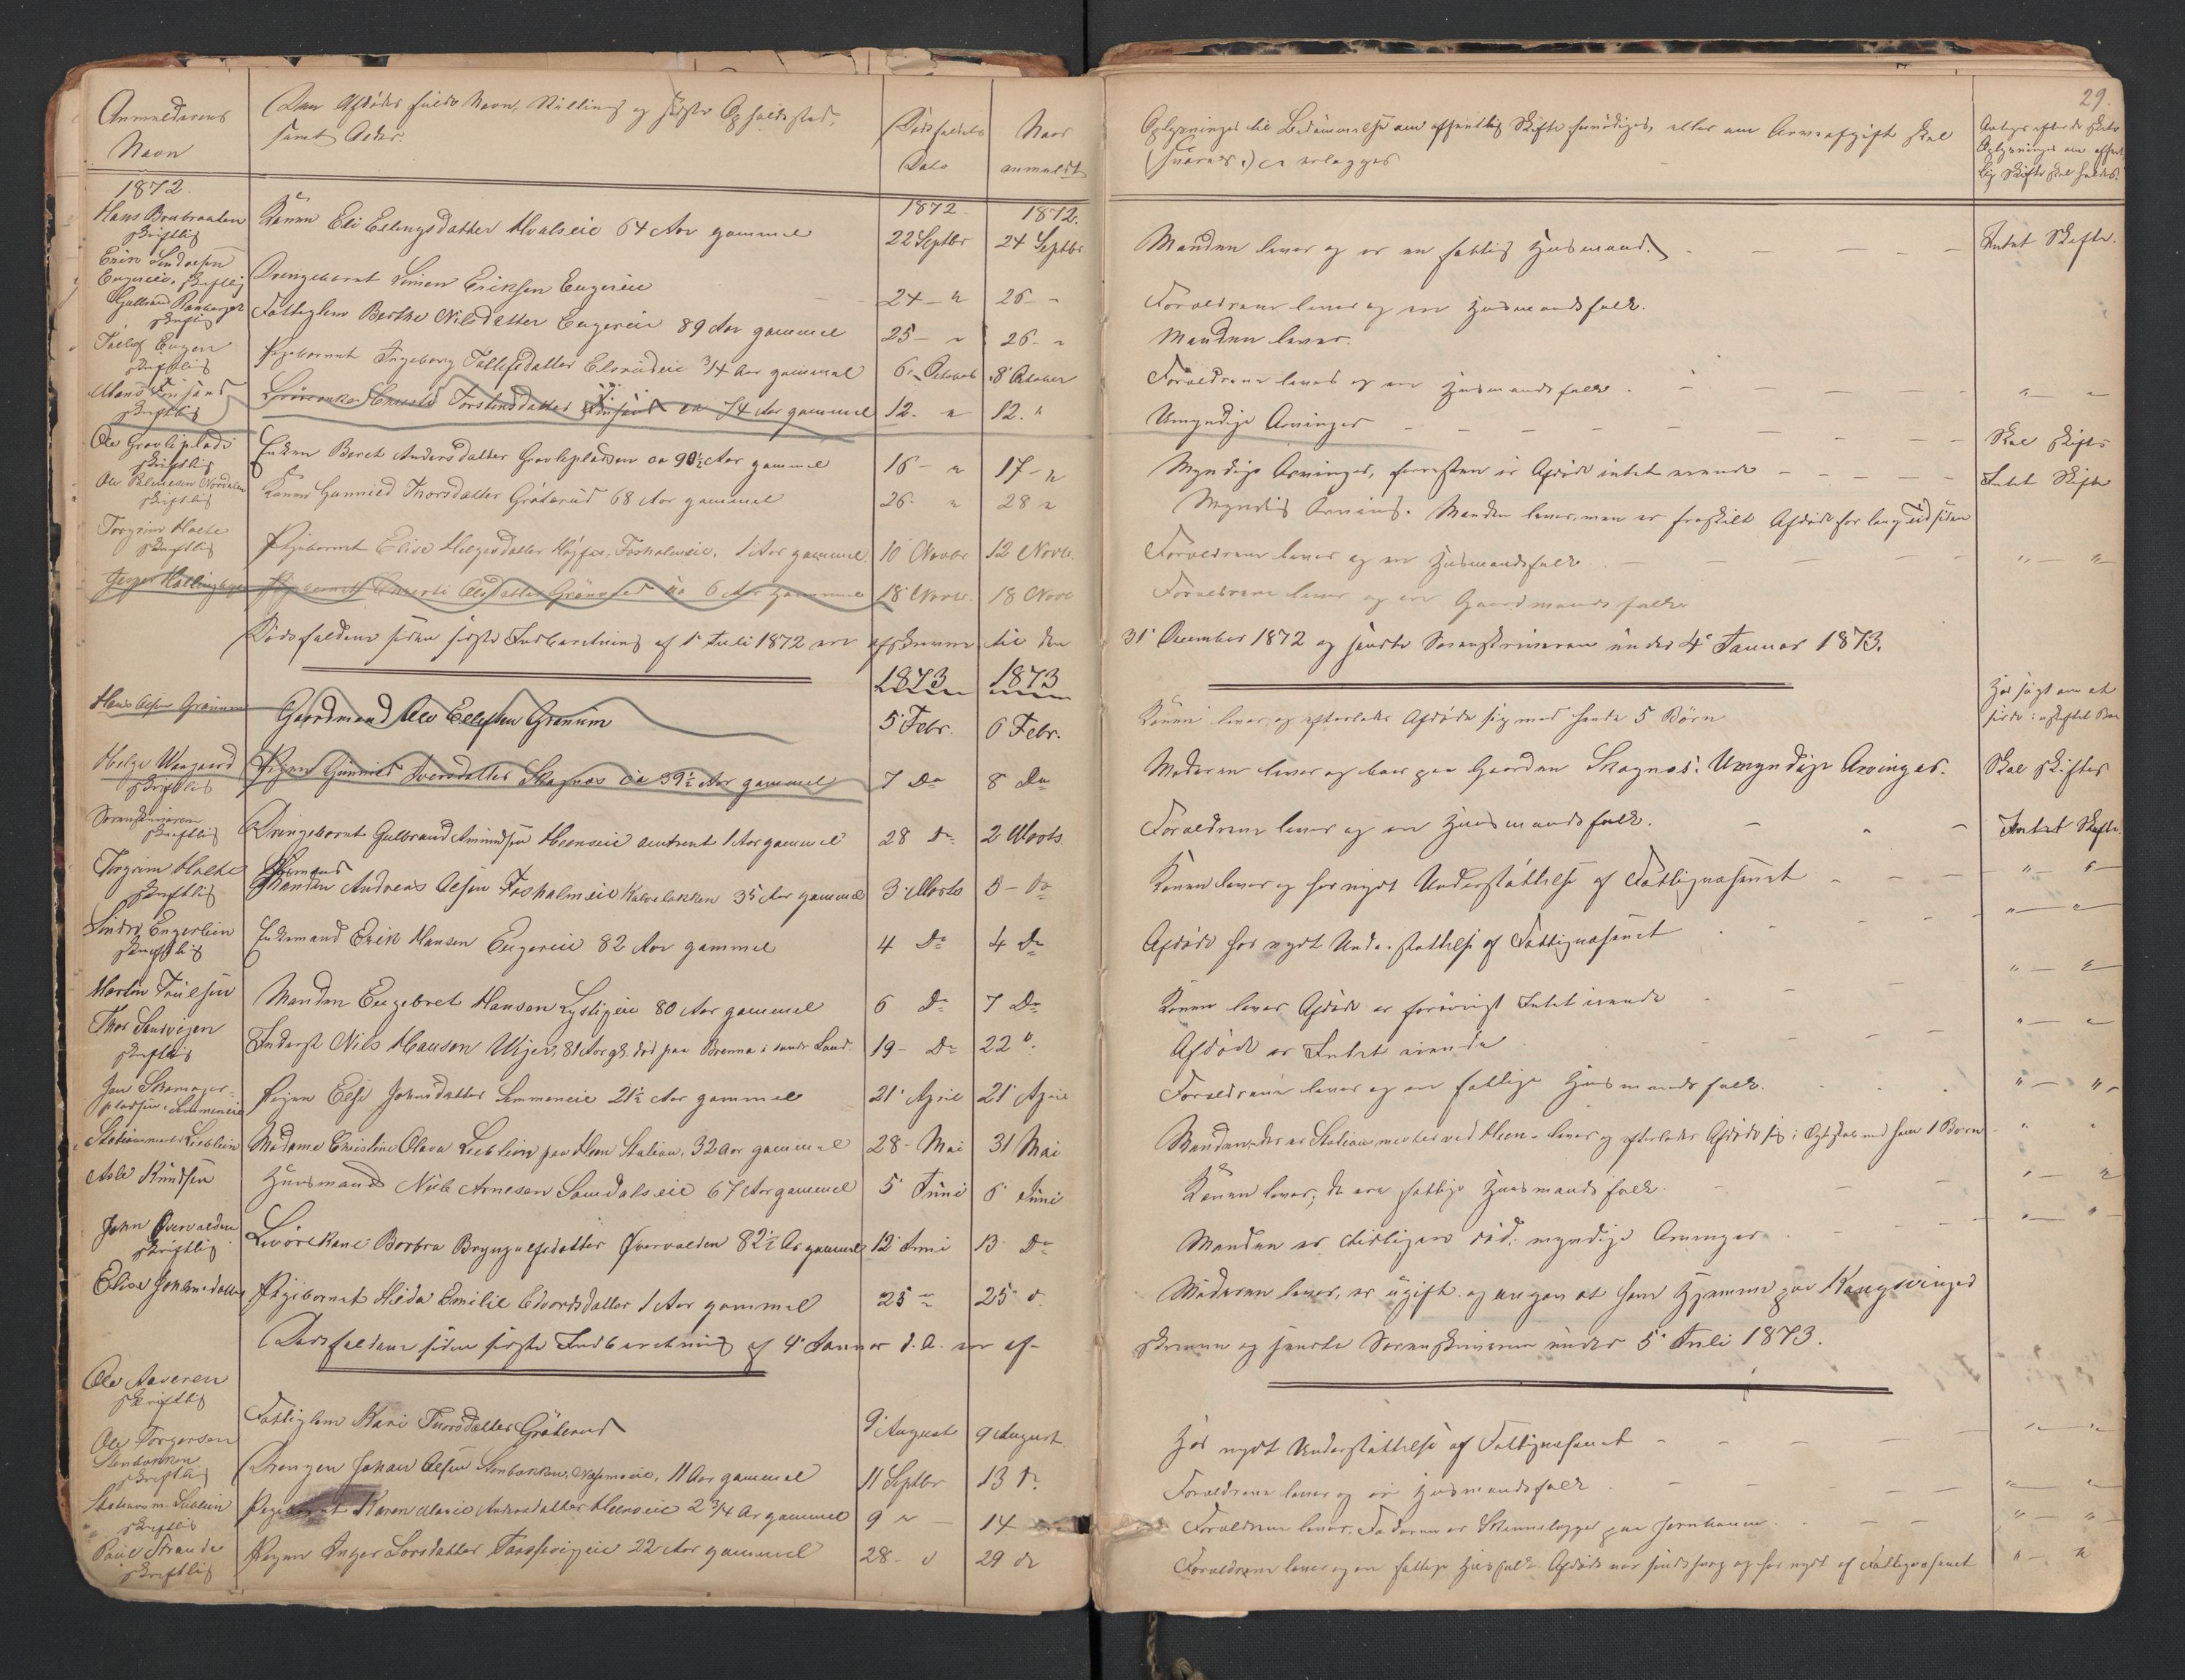 29.
Anmelderens
Navn
Den Afdødes fulde Navn, Stilling og sidste Opholdssted,
samt Alder.
Dødsfaldets
Dato
Naar
anmeldt
Oplysninger til Bedømmelse om offentlig Skifte fornødiges, eller om Arveafgift skal
(svares) erlægges
1872.
1872
1872.
Hans Brubraaten
skriftlig
Konen Eli Erlingsdatter Hvalseie 64 Aar gammel
22 Septbr
24 Septbr
Manden lever og er en fattig Husmand.
Intet Skifte.
Erik
Engereie, skriftlig
Drengebarnet Simen Eriksen Engereie
24 - "
26 - "
Forældrene lever og er Husmandsfolk.
Gulbrand
skriftlig
Fattiglem Berthe Nilsdatter Engereie 89 Aar gammel
25 - "
26 - "
Manden lever.
Engen
skriftlig
Pigebarnet Ingeborg Elsrudeie 3/4 Aar gammel
6 October
8 October
Forældrene lever og er Husmandsfolk.
" "
skriftlig
Torstensdatter ca 74 Aar gammel
12. "
12. "
Umyndige Arvinger
Skal skiftes
Ole Gravliplads
skriftlig
Enken Berit Andersdatter Gravlipladsen ca 90½ Aar gammel
16 - "
17 - "
Myndige Arvinger, forresten er Afdøde intet eiende
Intet Skifte
Ole Nordalen
skriftlig
Konen Gunnild Thorsdatter Gråterud 68 Aar gammel
26 - "
28 "
Myndig Arving. Manden lever, men er fraskilt Afdøde for lang Tid siden
Torgrim Holte
skriftlig
Pigebarnet Elise Helgesdatter Fosholmeie, 1 Aar gammel
10 Novbr
12 Novb.
Forældrene lever og er Husmandsfolk
" "
Pigebarnet Olsdatter 6 Aar gammel
18 Novb.
18 Novb
Forældrene lever og er Gaardmandsfolk
Dødsfaldene siden sidste Indberetning af 1 Juli 1872 er afskrevne til den
31 December 1872 og sendte Sorenskriveren under 4 Januar 1873.
1873
1873
Hans Olsen Grønum
Gaardmand Ole Ellefsen Grønum
5 Febr.
6 Febr.
Konen lever, og efterlader Afdøde sig med hende 5 Børn
Har søgt om at
sidde i uskiftet Bo
Helge Waagaard
skriftlig
Pigen Gunnild Iversdatter Skagnæs ca 39½ Aar gammel
7 Do
8 Do
Moderen lever og boer paa Gaarden Skagnæs. Umyndige Arvinger.
Skal skiftes
Sorenskriveren
skriftlig
Drengebarnet Gulbrand Amundsen Heenseie omtrent 1 Aar gammel
28 Do
2 Marts
Forældrene lever og er Husmandsfolk.
Intet Skifte.
Torgrim Holte
skriftlig
Husmand
Manden Andreas Olsen Fosholmeie Kalveløkken 35 Aar gammel
3 Marts
3 - Do
Konen lever og har nydt Understøttelse af Fattigvæsenet
" "
Engerbien
skriftlig
Enkemand Erik Hansen Engereie 82 Aar gammel
4 Do
4 Do
Afdøde har nydt Understøttelse af Fattigvæsenet
" "
Martin Trulsen
Manden Engebret Hansen 80 Aar gammel
6 Do
7 Do
Konen lever Afdøde er forøvrigt Intet eiende
" "
Thor
skriftlig
Inderst Nils Hansen 81 Aar gl. død paa Brenna i søndr Land
19 - Do
22 Do.
Afdøde er Intet eiende
" "
Pigen Else Johnsdatter 21½ Aar gammel
21 April
21 April
Forældrene lever og er fattige Husmandsfolk.
" "
Stationsmester Lieblein
Madame Christine Olava Lieblein paa Heen Station, 32 Aar gammel
28 - Mai
31 Mai
Manden, der er Stationsmester ved Heen - lever og efterlader Afdøde sig i Ægteskab med ham 1 Barn
" "
Knudsen
Huusmand Niels Arnesen 67 Aar gammel
5 Juni
6 Juni
Konen lever; de ere fattige Huusmandsfolk.
" "
John Øvervolden
skriftlig
Livørekone Barbra Bryngulfsdatter Øvervolden 82½ Ar gammel
12 Juni
13 Do
Manden er tidligere død; myndige Arvinger
" "
Elise Johansdatter
Pigebarnet Hilda Emilie Edvardsdatter 1 Aar gammel
25 "
25 d.
Moderen lever, er ugift, og angav at have Hjemme paa Kongsvinger
Dødsfaldene siden sidste Indberetning af 4 Januar d. A. er af-
skrevne og sendte Sorenskriveren under 5 Juli 1873.
Ole Aaveren
skriftlig
Fattiglem Kari Thorsdatter Gråterud
9 August
9 August
Har nydt Understøttelse af Fattigvæsenet
" "
Ole Torgersen
Stenbakken
skriftlig
Drengen Johan Olsen Stenbakken, 11 Aar gammel
11 Septbr
13 Do
Forældrene lever og er Husmandsfolk
" "
Stationsm. Lieblein
skriftlig
Pigebarnet Karen Marie Andersdatter Heenseie 2 3/4 Ar gammel
9 " -
14
Forældrene lever. Faderen er Skinnelægger paa Jernbanen
" "
Paul Strande
skriftlig
Pigen Inger Larsdatter 22 Aar gammel
28 - d
29 do
Forældrene lever og er fattige Husfolk Afdøde var sindssvag og har nydt af Fattigvæsenet
" "